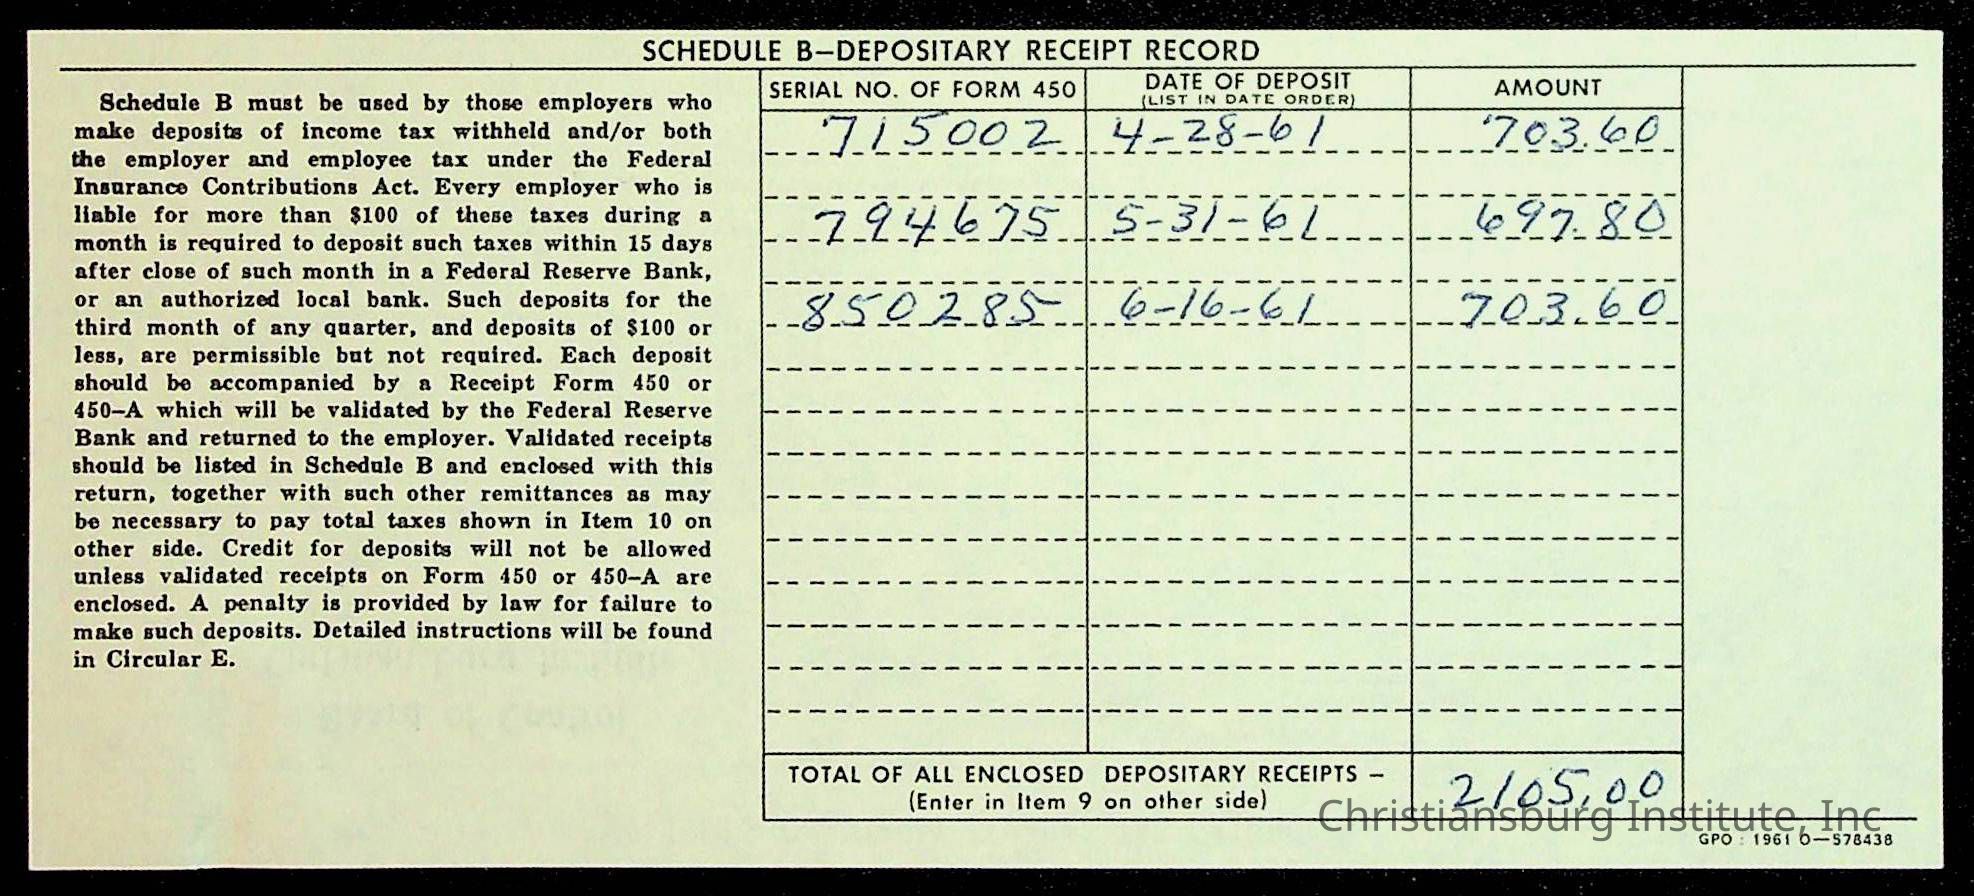 SCHEDULE B—DEPOSITARY RECEIPT RECORD
Schedule B must be used by those employers who
make deposits of income tax withheld and/or both
the employer and employee tax under the Federal
Insurance Contributions Act. Every employer who is
liable for more than $100 of these taxes during a
month is required to deposit such taxes within 15 days
after close of such month in a Federal Reserve Bank,
or an authorized local bank. Such deposits for the
third month of any quarter, and deposits of $100 or
less, are permissible but not required. Each deposit
should be accompanied by a Receipt Form 450 or
450—A which will be validated by the Federal Reserve
Bank and returned to the employer. Validated receipts
should be listed in Schedule B and enclosed with this
return, together with such other remittances as may
be necessary to pay total taxes shown in Item 10 on
other side. Credit for deposits will not be allowed
unless validated receipts on Form 450 or 450—A are
enclosed. A penalty is provided by law for failure to
make such deposits. Detailed instructions will be found
in Circular E.
SERIAL NO. OF FORM 450 DATE OF DEPOSIT AMOUNT
(LIST IN DATE ORDER)
715002 4-28-61 703.60
794675 5-31-61 697.80
850285 6-16-61 703.60
TOTAL OF ALL ENCLOSED DEPOSITARY RECEIPTS – 2105.00
(Enter in Item 9 on other side)
Christiansburg Institute, Inc
GPO : 1961 O—578438